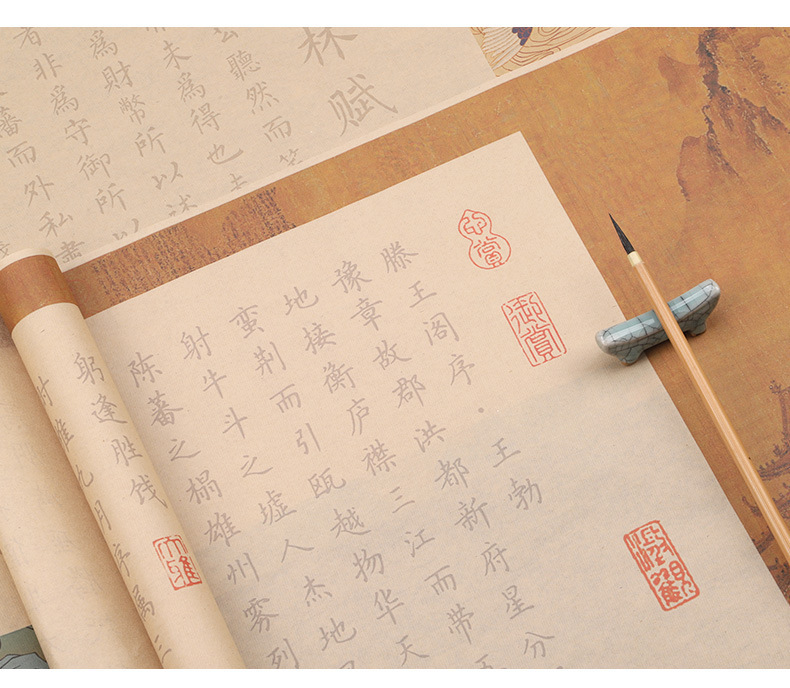 林赋
公聽然而笑
未為得也夫
為財幣所以述
者非為守御所以
藩而外私肅
滕王阁序 王勃
豫章故郡洪都新府星分
地接衡庐襟三江而带五
蛮荆而引瓯越物华天
射牛斗之墟人杰地
陈蕃之榻雄州雾列
躬逢胜饯
时维九月序属三
御赏
大雅
澄觀